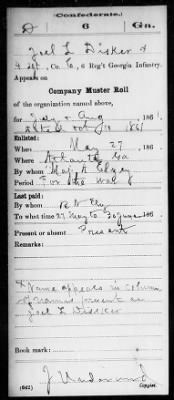 Confederate.
D 6 Ga.
Joel L Disker
4 Sgt, Co. E, 6 Reg't Georgia Infantry.
Appears on
Company Muster Roll
of the organization named above,
for July & Aug, 1861.
dated Oct 1861
Enlisted:
When May 27, 1861.
Where Atlanta Ga
By whom Maj A Elzey
Period For the War
Last paid:
By whom
To what time 27 May to 30 June, 1861.
Present or absent Present
Remarks:
* Name appears in column
of names present as
Joel L Dissker
Book mark:
J. Underwood
(642) Copyist.